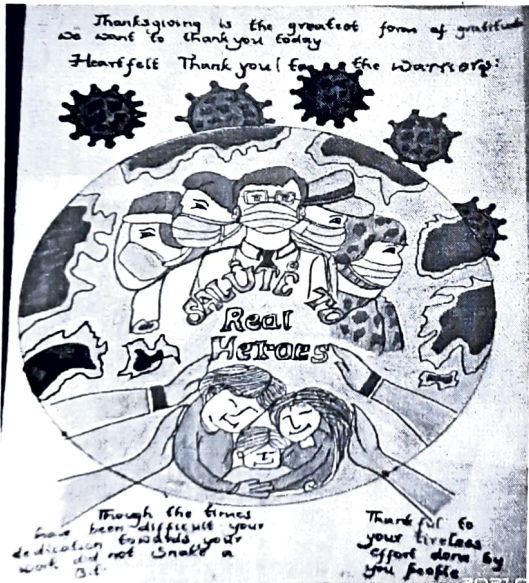 Thanksgiving is the greatest form of gratitude
we want to thank you today
Heartfelt Thank you! for the warriors:
SALUTE TO
Real
Heroes
Though the times
have been difficult your
dedication towards your
work did not shake a
Bit.
Thankful to
your tireless
effort done by
you people